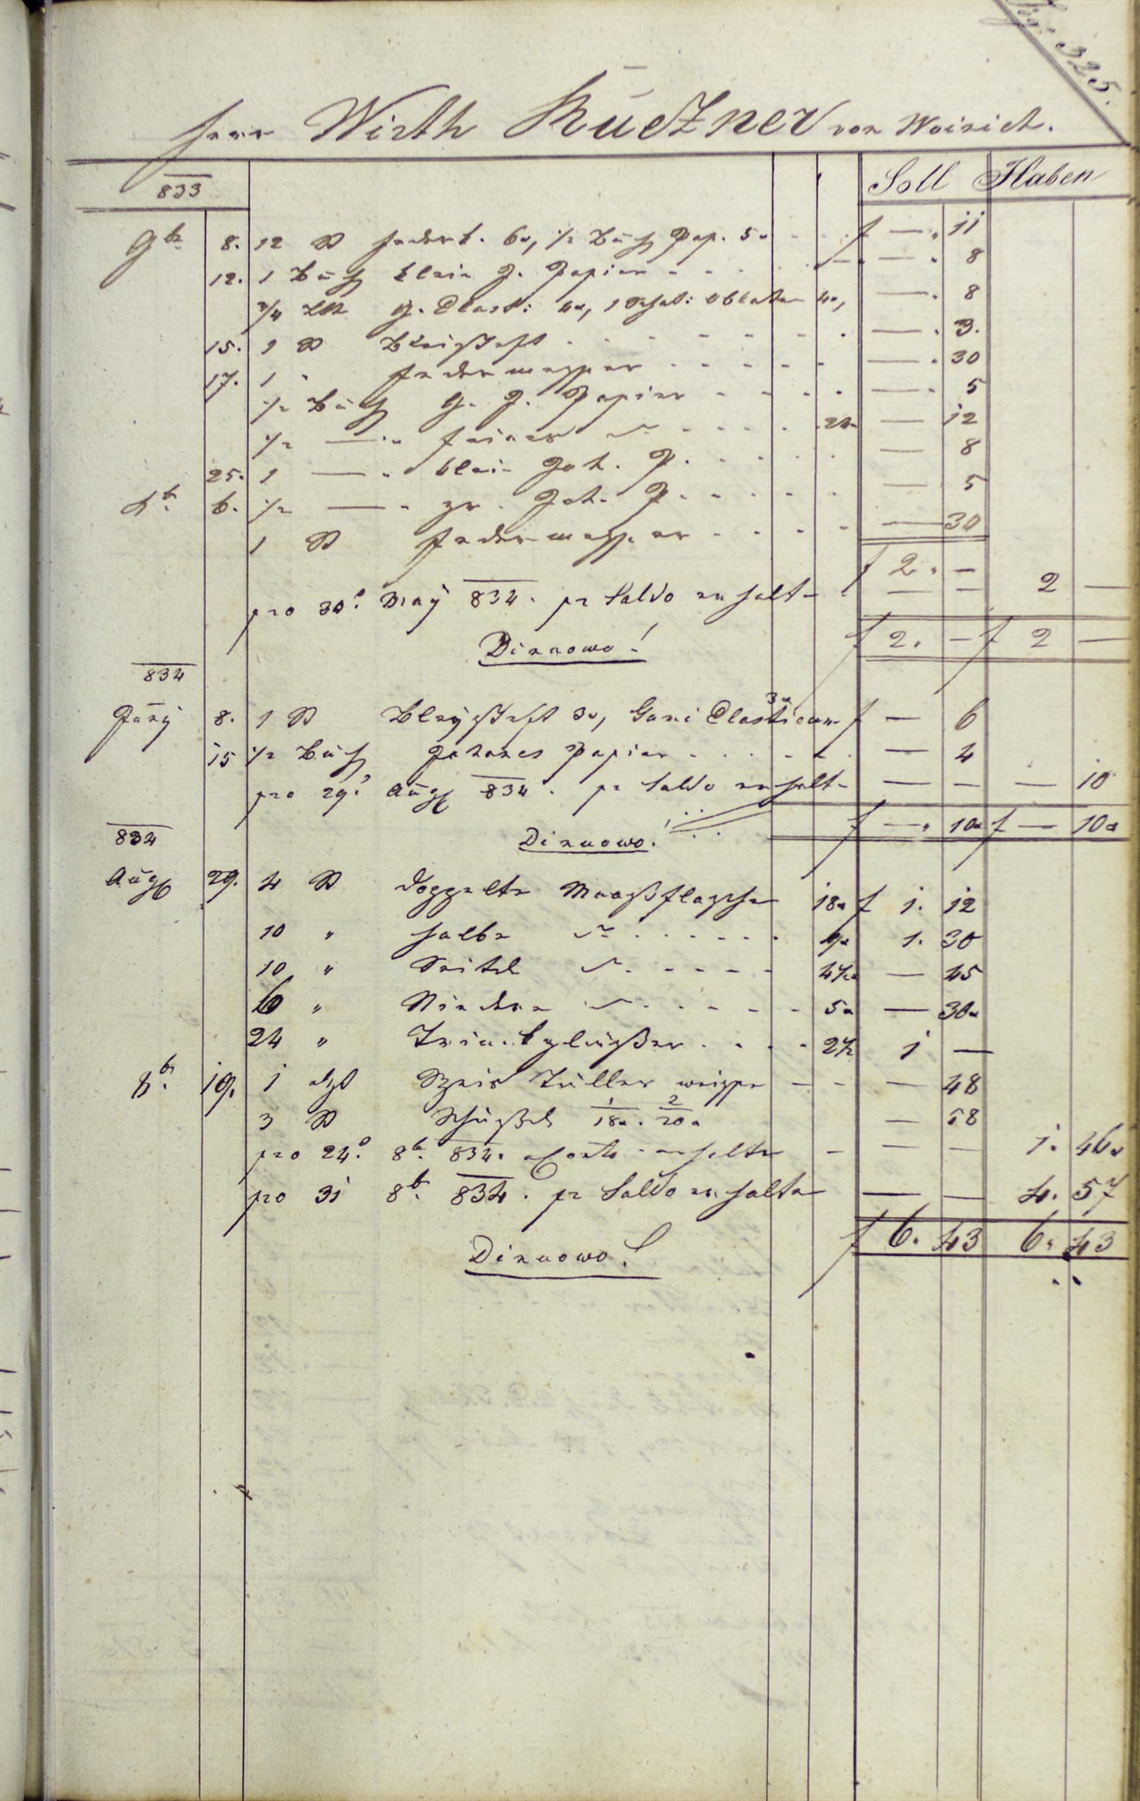 325.
Herr Wirth Kuetzner von Woisich.
833
Soll Haben
9br 8. 12 S Federk. 6x, 1/2 Buch Pap. 5x f — 11
12. 1 Buch klein g. Papier — 8
3/4 Lth g. Elast: 4x, 1 Schat: Oblaten 4x, — 8
15. 1 S Bleistift — 3.
17. 1 " Federmesser — 30
1/2 Buch g. g. Papier — 5
1/2 — " feines 24x — 12
25. 1 — " klein Joh. P. — 8
6. 1/2 — " gr. Joh. P. — 5
1 S Federmesser — 30
f 2. —
pro 30. May 834. pr Saldo erhalten — — 2 —
f 2. — f 2 —
834
Jäny 8. 1 S Bleystift 3x, Gumi Elasticum 3x f — 6
15 1/2 Buch Johanes Papier — 4
pro 29. Aug 834. pr Saldo erhalten — — — 10
f — 10x f — 10x
834
Aug 29. 4 S Doppelte Maaßflaschen 18x f 1. 12
10 " halbe do 9x 1. 30
10 " Seitel do 4 1/2x — 45
6 " Niedere do 5x — 30x
24 " Trinkgläßer 2 1/2 1 —
8br 19. 1 dzt Speis Täller weisse — 48
3 S Schüßel 1/18x. 2/20x — 58
pro 24. 8br 834. aConto erhalten — — 1. 46x
pro 31 8br 834. pr Saldo erhalten — — 4. 57
f 6. 43 6. 43